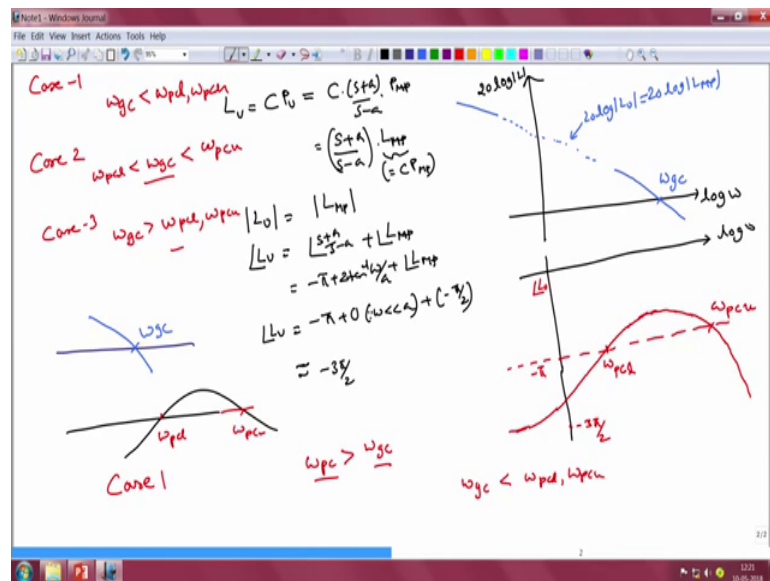 Note1 - Windows Journal
File Edit View Insert Actions Tools Help
Case-1
ωgc < ωpcl, ωpcu
L_U = C P_U = C·(s+a)/(s-a)·P_MP
= ((s+a)/(s-a))·L_MP
(= C P_MP)
Case 2
ωpcl < ωgc < ωpcu
Case-3 ωgc > ωpcl, ωpcu
|L_U| = |L_MP|
∠L_U = ∠(s+a)/(s-a) + ∠L_MP
= -π + 2tan⁻¹ω/a + ∠L_MP
∠L_U = -π + 0 (∵ω<<a) + (-π/2)
≈ -3π/2
ωgc
ωpcl
ωpcu
Case 1
ωpc > ωgc
20 log|L|
20 log|L_U| = 20 log|L_MP|
ωgc
log ω
log ω
∠L_U
ωpcu
-π
ωpcl
-3π/2
ωgc < ωpcl, ωpcu
2/2
2
12:21
10-05-2018